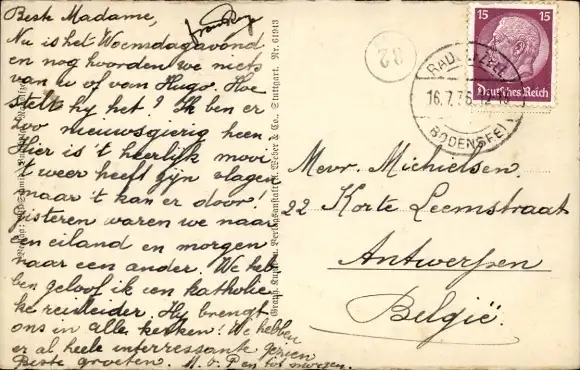 Beste Madame,
Nu is het Woensdagavond
en nog hoorden we niets
van u of van Hugo. Hoe
stelt hij het? Ik ben er
zoo nieuwsgierig heen.
Hier is 't heerlijk mooi
't weer heeft zijn vlagen
maar 't kan er door!
Gisteren waren we naar
een eiland en morgen
naar een ander. We heb-
ben geloof ik een katholie
ke reisleider. Hij brengt
ons in alle kerken! We hebben
er al heele interressante gezien
Beste groeten.
Weber & Co., Stuttgart. Nr. 61943
32
15 15
Deutsches Reich
RADOLFZELL
16.7.36
BODENSEE
Mevr. Michielsen.
22 Korte Leemstraat
Antwerpen
België.